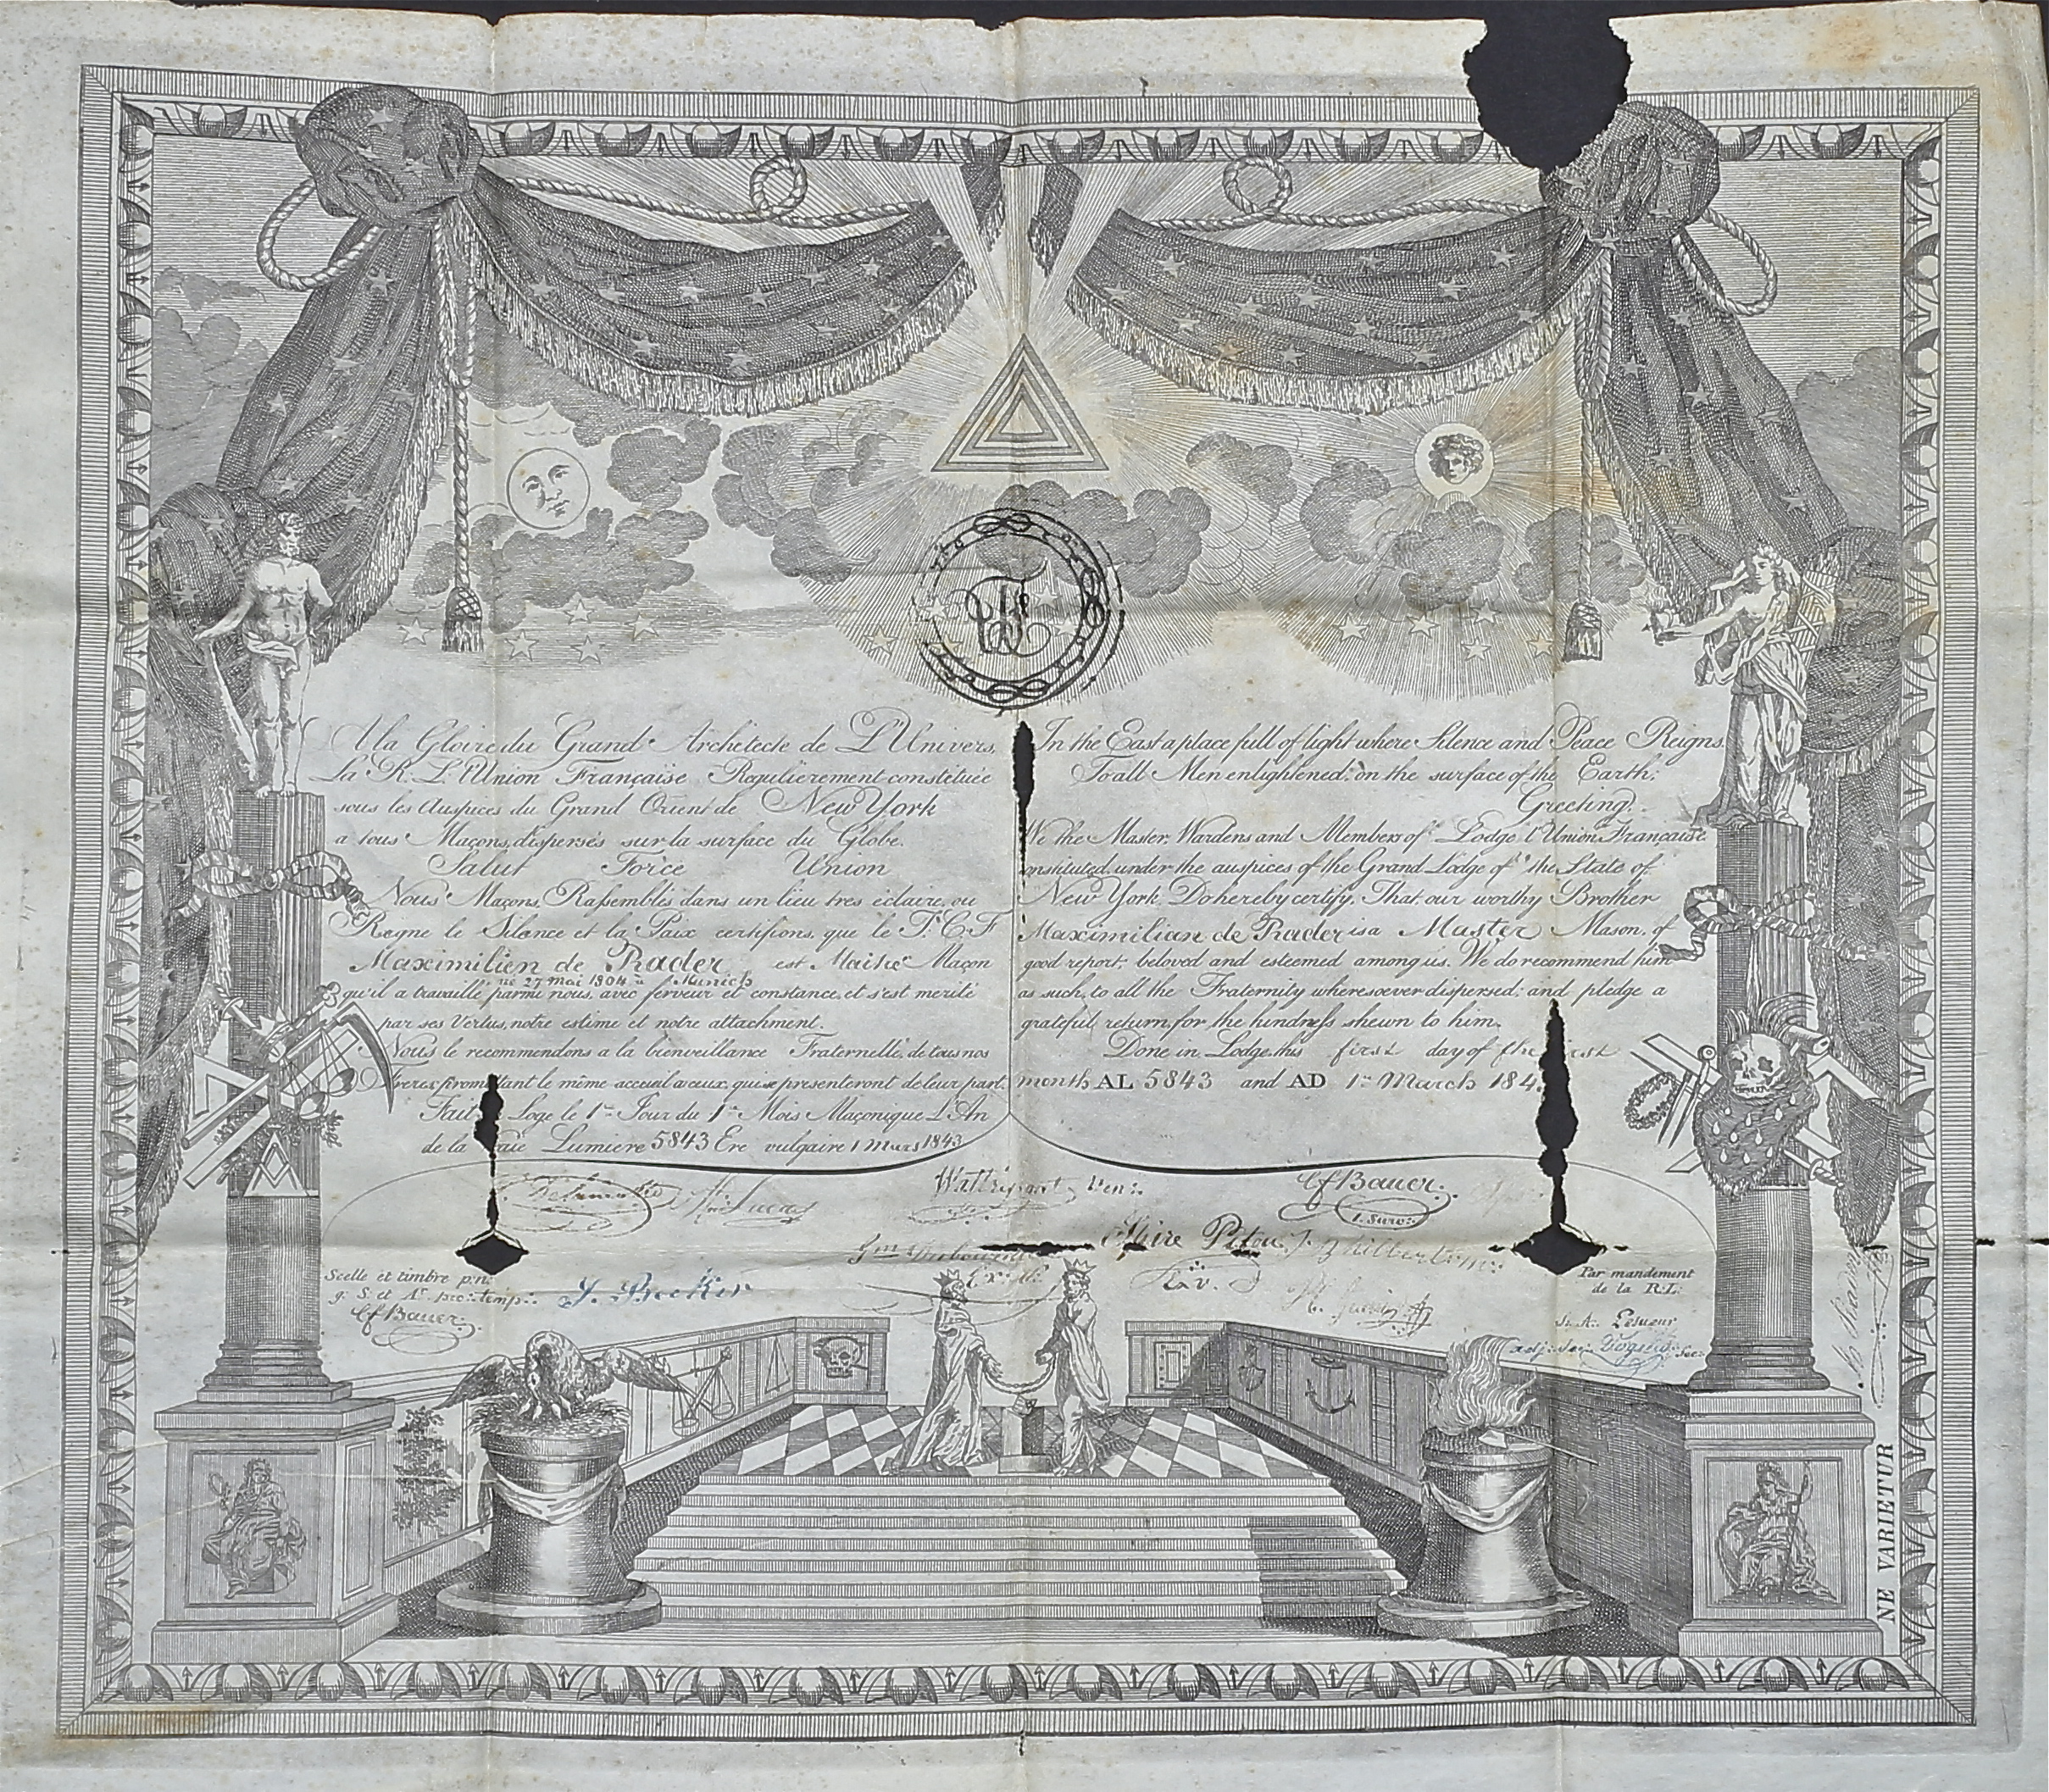 A la Gloire du Grand Architecte de L'Univers,
La R. L. l'Union Française Regulierement constituée
sous les Auspices du Grand Orient de New York
a tous Maçons, dispersés sur la surface du Globe.
Salut Force Union
Nous Maçons, Rassemblés dans un lieu tres éclaire, ou
Regne le Silence et la Paix certifions, que le T. C. F.
Maximilien de Prader est Maitre Maçon
né 27 mai 1804 a Munich
qu'il a travaillé parmi nous, avec ferveur et constance, et s'est merité
par ses Vertus, notre estime et notre attachment.
Nous le recommendons a la bienveillance Fraternelle, de tous nos
Freres, promettant le même acceuil a ceux, qui se presenteront de leur part.
Fait Loge le 1er Jour du 1er Mois Maçonique L'An
de la Lumiere 5843 Ere vulgaire 1 Mars 1843
In the East a place full of light where Silence and Peace Reigns.
To all Men enlightened on the surface of the Earth:
Greeting.
We the Master, Wardens and Members of Lodge l'Union Française
onstituted under the auspices of the Grand Lodge of the State of
New York, Do hereby certify, That our worthy Brother
Maximilian de Prader is a Master Mason, of
good report, beloved and esteemed among us. We do recommend him
as such, to all the Fraternity wheresoever dispersed; and pledge a
grateful return for the kindness shewn to him.
Done in Lodge this first day of the
month AL 5843 and AD 1st March 184
Lucas
Ven:.
Cf Bauer:.
1. Surv:.
Pitou
Scelle et timbre p:n:
g: S. et Ar. pro: temp:.
Cf Bauer:.
J. Becker
Par mandement
de la R:L:
Lesueur
adj: Sec:
Sec:
NE VARIETUR